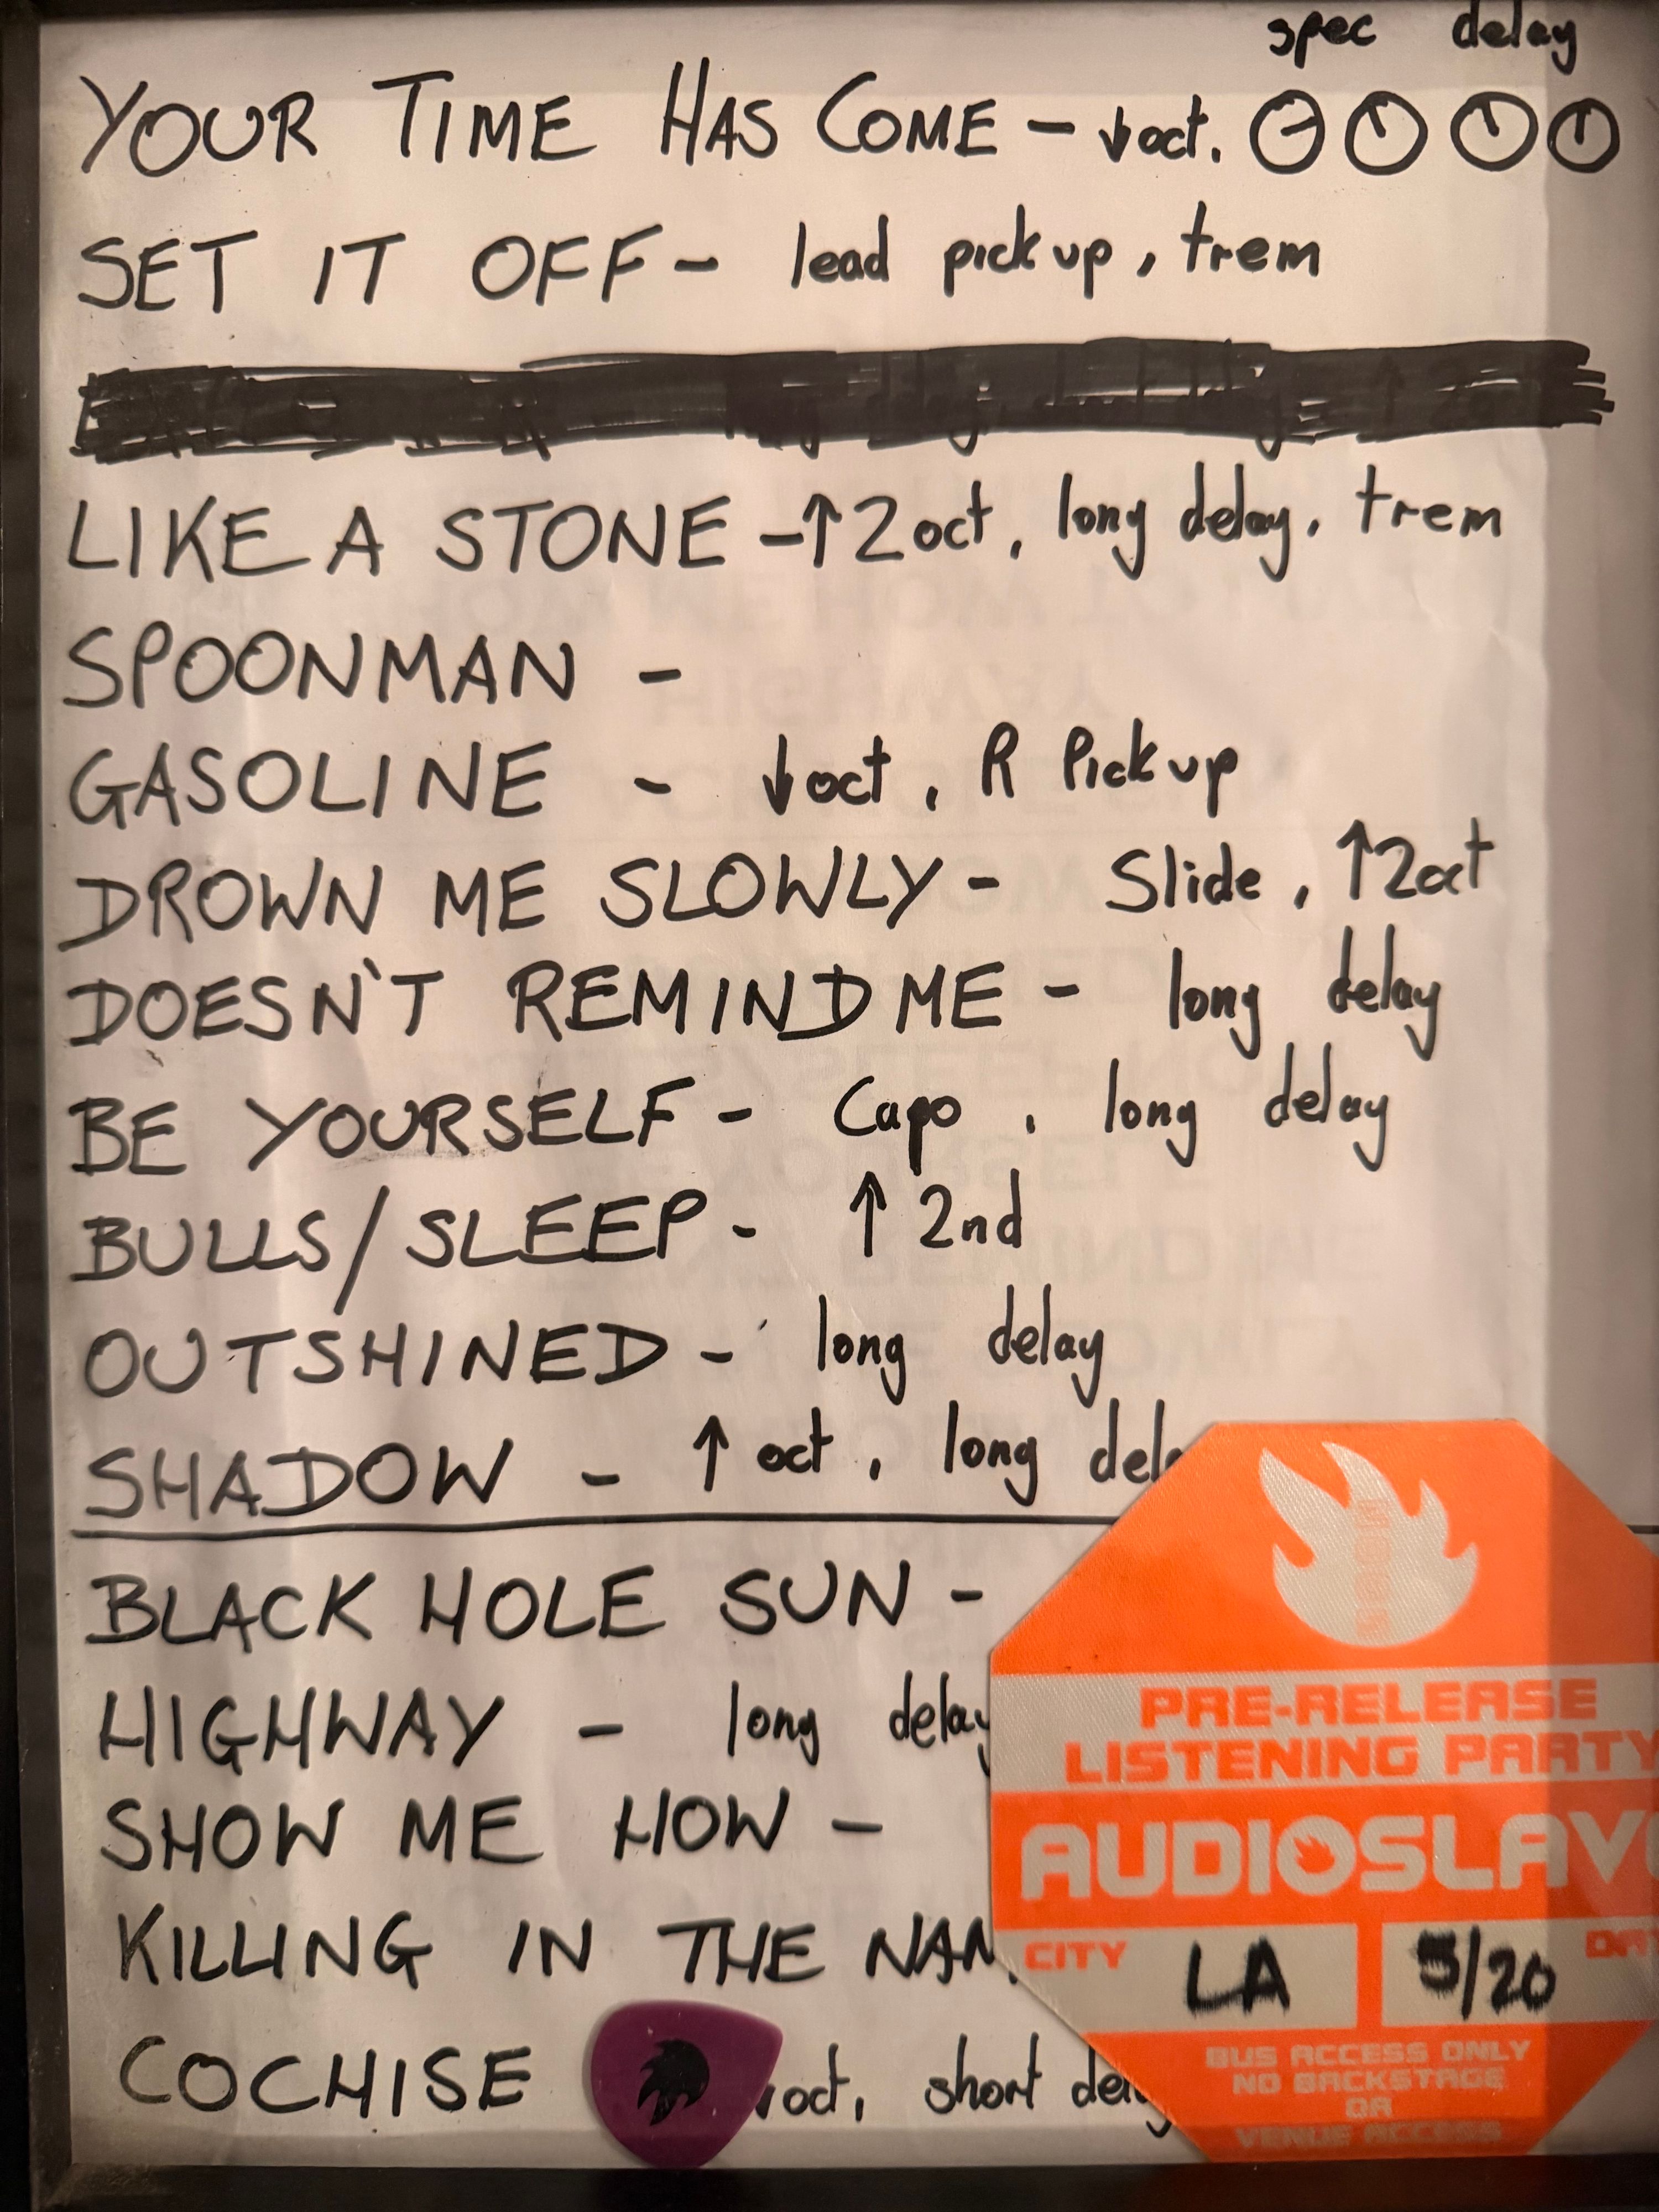 spec delay
YOUR TIME HAS COME - ↓oct.
SET IT OFF - lead pickup, trem
LIKE A STONE - ↑2oct, long delay, trem
SPOONMAN -
GASOLINE - ↓oct, R Pickup
DROWN ME SLOWLY - Slide, ↑2oct
DOESN'T REMIND ME - long delay
BE YOURSELF - Capo, long delay
BULLS/SLEEP - ↑ 2nd
OUTSHINED - long delay
SHADOW - ↑ oct, long dela
BLACK HOLE SUN -
HIGHWAY - long delay
SHOW ME HOW -
KILLING IN THE NAM
COCHISE oct, short delay
PRE-RELEASE
LISTENING PARTY
AUDIOSLAV
CITY LA 5/20 DAT
BUS ACCESS ONLY
NO BACKSTAGE
OR
VENUE ACCESS